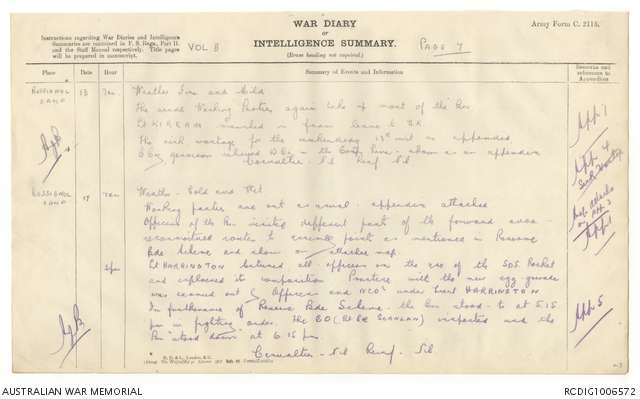 WAR DIARY
or
INTELLIGENCE SUMMARY.
(Erase heading not required.)
Army Form C. 2118.
Instructions regarding War Diaries and Intelligence
Summaries are contained in F. S. Regs., Part II.
and the Staff Manual respectively. Title pages
will be prepared in manuscript.
VOL 8
PAGE 7
Place
Date
Hour
Summary of Events and Information
Remarks and
references to
Appendices
ROSSIGNOL
CAMP
13
7am
Weather Fine and Cold
The usual Working Parties again take up most of the Bn
Lt KIRKEAN marched in from leave to U.K.
The sick wastage for the week ending 13th inst as appended
relieved D Coy
as on appendix
Casualties Nil Reinf Nil
App 1
App 4
Sick Wastage
ROSSIGNOL
CAMP
14
7am
Weather - Cold and Wet
Working parties are out as usual - appendix attached
Officers of the Bn visited different parts of the forward area -
reconnoitred routes to assemble point as mentioned in Reserve
Bde Scheme and shown on attached map
4pm
Lt HARRINGTON lectured all officers on the use of the SOS Rocket
and explained its composition Practice with the new egg grenade
was carried out by Officers and NCOs under Lieut HARRINGTON
In furtherance of Reserve Bde Scheme - the Bn stood-to at 5.15
pm in fighting order. The CO (Lt Col SCANLAN) inspected and the
Bn stood down at 6.15 pm.
Casualties - Nil Reinf - Nil
Map attached
App 2
App 1
App 5
AUSTRALIAN WAR MEMORIAL
RCDIG1006572